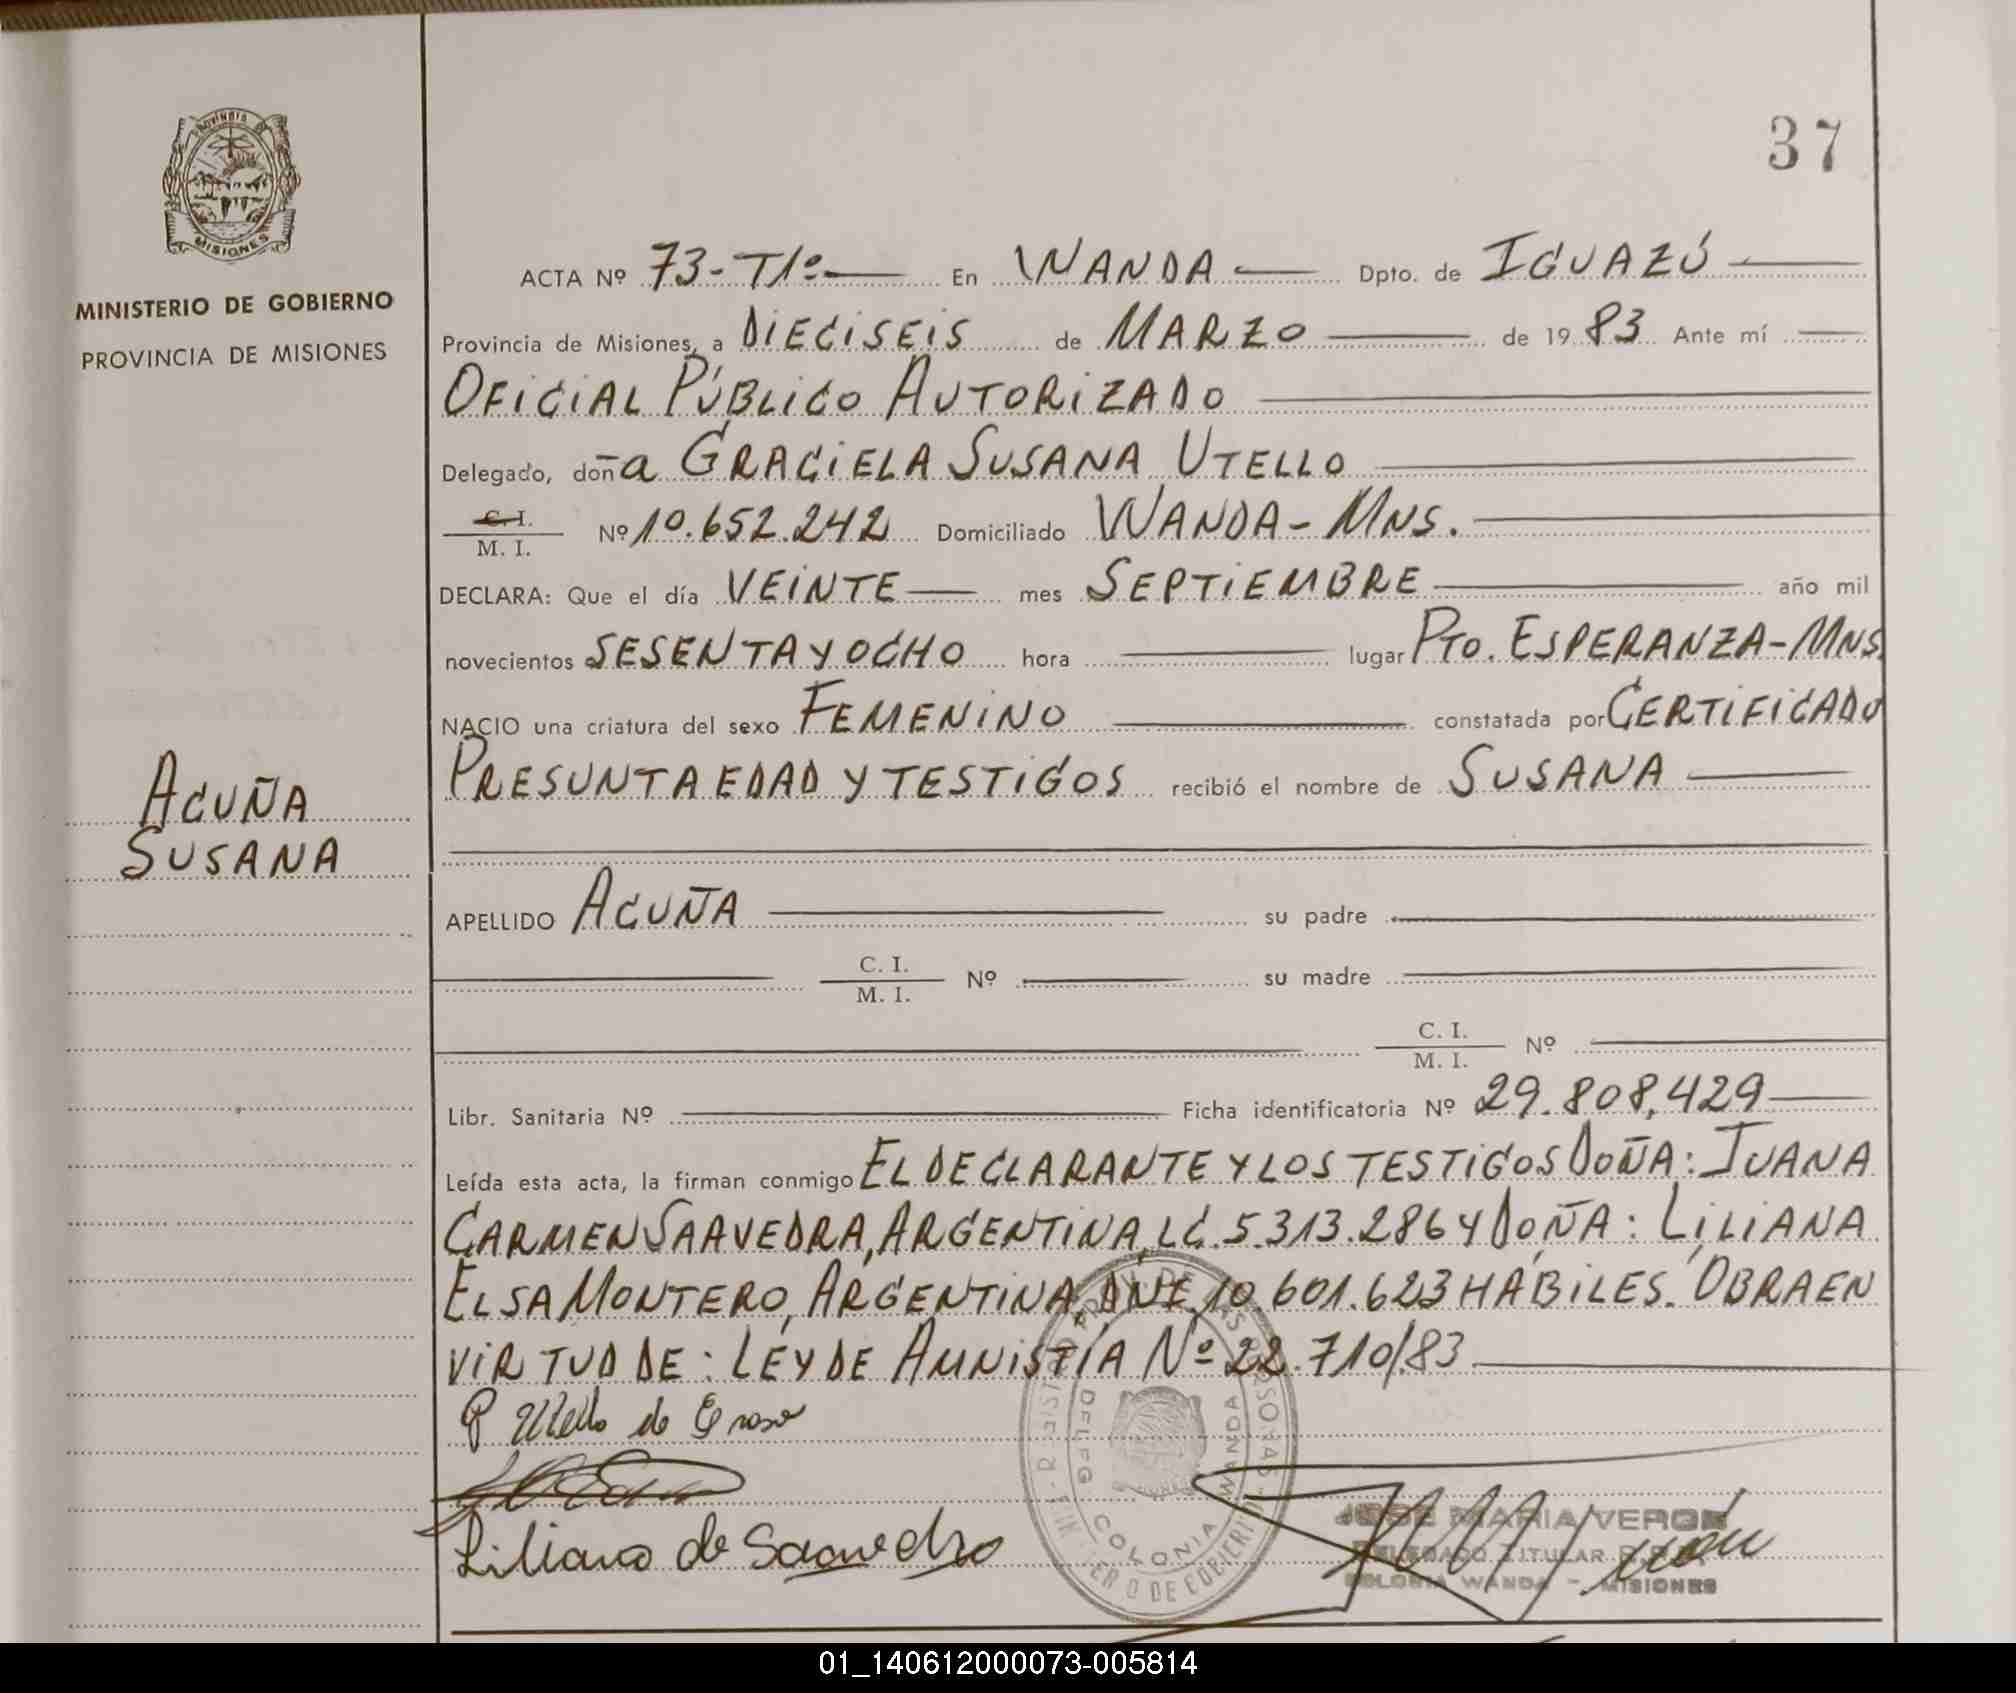 37
PROVINCIA DE
MISIONES
MINISTERIO DE GOBIERNO
PROVINCIA DE MISIONES
ACUÑA
SUSANA
ACTA Nº 73-T1º En WANDA Dpto. de IGUAZÚ
Provincia de Misiones, a DIECISEIS de MARZO de 1983 Ante mí
OFICIAL PÚBLICO AUTORIZADO
Delegado, doña GRACIELA SUSANA UTELLO
C. I.
M. I. Nº 10.652.242 Domiciliado WANDA-MNS.
DECLARA: Que el día VEINTE mes SEPTIEMBRE año mil
novecientos SESENTA Y OCHO hora lugar PTO. ESPERANZA-MNS.
NACIO una criatura del sexo FEMENINO constatada por CERTIFICADO
PRESUNTA EDAD Y TESTIGOS recibió el nombre de SUSANA
APELLIDO ACUÑA su padre
C. I.
M. I. Nº su madre
C. I.
M. I. Nº
Libr. Sanitaria Nº Ficha identificatoria Nº 29.808.429
Leída esta acta, la firman conmigo EL DECLARANTE Y LOS TESTIGOS DOÑA: JUANA
CARMEN SAAVEDRA, ARGENTINA, LC. 5.313.286 Y DOÑA: LILIANA
ELSA MONTERO, ARGENTINA, DNI. 10.601.623 HÁBILES. OBRA EN
VIRTUD DE: LEY DE AMNISTÍA Nº 22.710/83
Utello de
Liliana de Saavedra
COLONIA WANDA
JOSE MARIA VERON
DELEGADO TITULAR
COLONIA WANDA - MISIONES
01_140612000073-005814